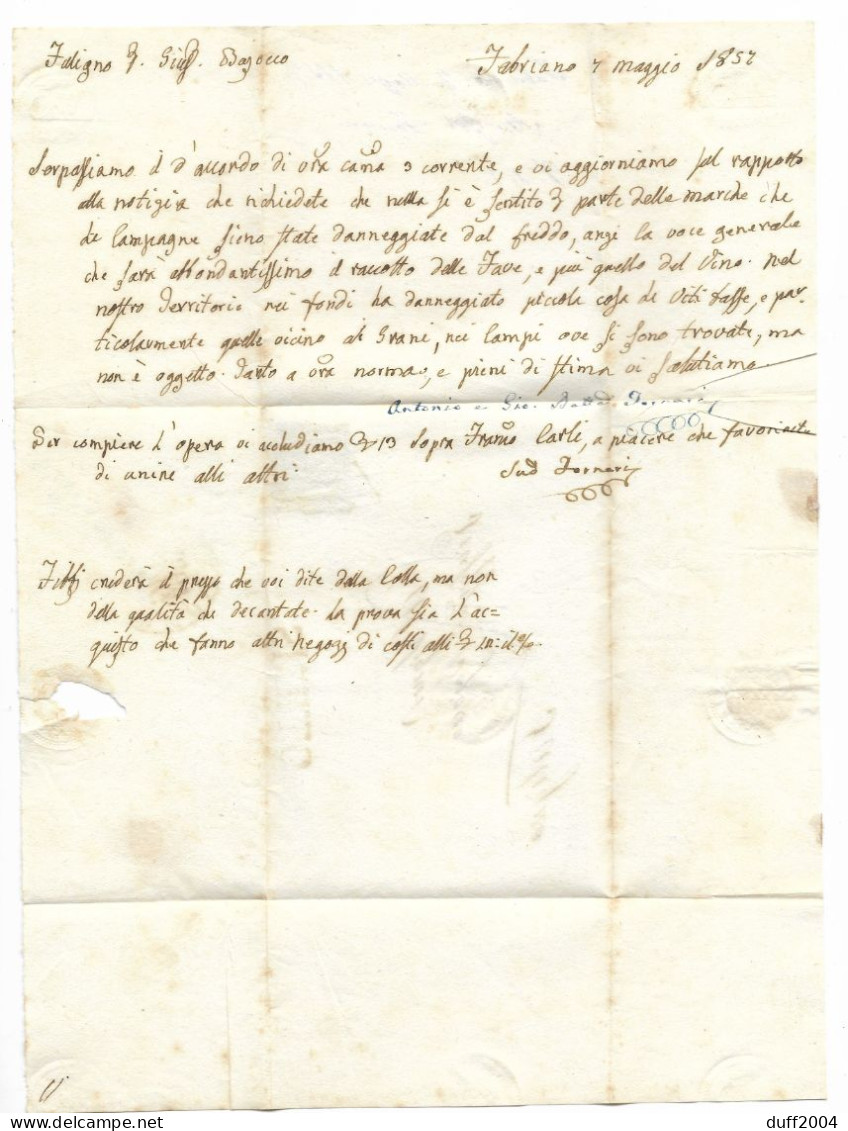 Foligno Giusp. Bazocco Fabriano 7 maggio 1857
Sorpassiamo il d'accordo di vra cara 3 corrente, e vi aggiorniamo sul rapporto
alla notizia che richiedete che nulla si è sentito parte delle marche che
le Campagne sieno state danneggiate dal freddo, anzi la voce generale
che sarà abbondantissimo il raccolto delle Fave, e più quello del Vino. nel
nostro Territorio nei fondi ha danneggiato piccola cosa le Viti basse, e par=
ticolarmente quelle vicino ai Grani, nei Campi ove si sono trovate, ma
non è oggetto. Tanto a vra norma, e pieni di stima vi salutiamo
Antonio e Gio. Batta Fornari
Per compiere l'opera vi accludiamo 13 sopra Franco Carli, a piacere che favorirete
di unire alli altri. Sud Fornari
crederà il prezzo che voi dite della Colla, ma non
della qualità che decantate. la prova sia l'ac=
quisto che fanno altri negozj di costì alli il %.
duff2004